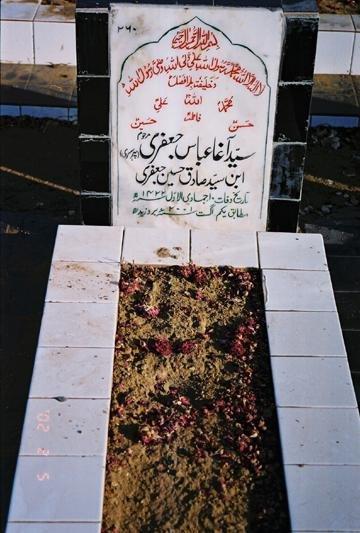 ۲۶۰
بسم اللہ الرحمن الرحیم
لا الہ الا اللہ محمد رسول اللہ علی ولی اللہ وصی رسول اللہ
وخلیفتہ بلا فصل
محمدؐ اللہ علیؑ
فاطمہؑ
حسنؑ حسینؑ
سید آغا عباس جعفری مرحوم
ابن سید صادق حسین جعفری
تاریخ وفات ۱۰ جمادی الاول ۱۴۲۲ھ
مطابق یکم اگست ۲۰۰۱ء بروز بدھ
'02 2 5